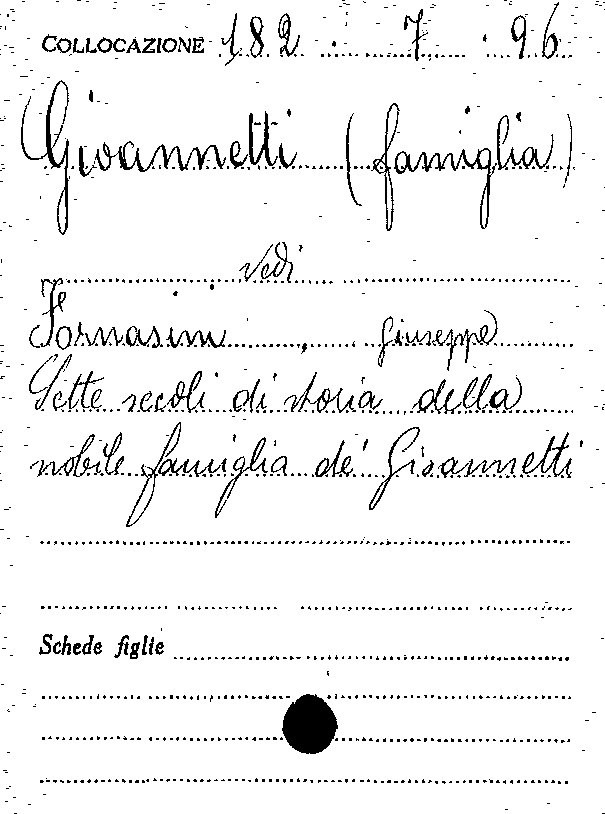 COLLOCAZIONE 182 . 7 . 96
Giovannetti (famiglia)
vedi
Fornasini, Giuseppe
Sette secoli di storia della
nobile famiglia de' Giovannetti
Schede figlie